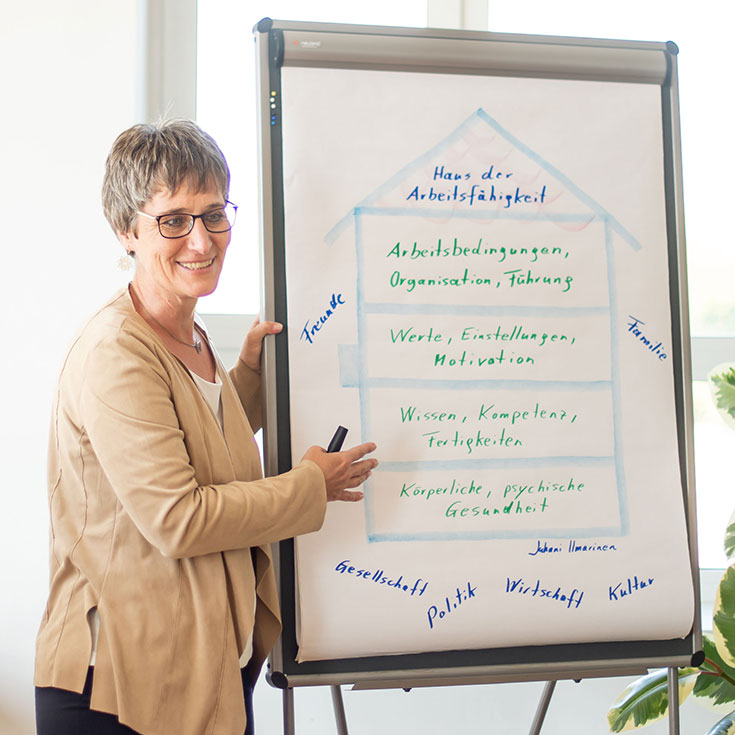 Haus der
Arbeitsfähigkeit
Arbeitsbedingungen,
Organisation, Führung
Freunde
Familie
Werte, Einstellungen,
Motivation
Wissen, Kompetenz,
Fertigkeiten
Körperliche, psychische
Gesundheit
Juhani Ilmarinen
Gesellschaft
Politik
Wirtschaft
Kultur